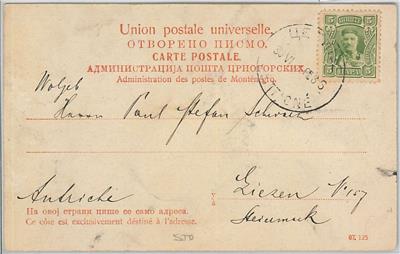 Union postale universelle.
ОТВОРЕНО ПИСМО.
CARTE POSTALE.
АДМИНИСТРАЦИЈА ПОШТА ЦРНОГОРСКИХ.
Administration des postes de Monténégro.
5 5
ЦЕ
TIGNÉ
Herrn Paul Stefan
Autriche
Liezen No 157
Steiermark
На овој страни пише се само адреса.
Ce côte est exclusivement déstiné à l'adresse.
STO
07, 125